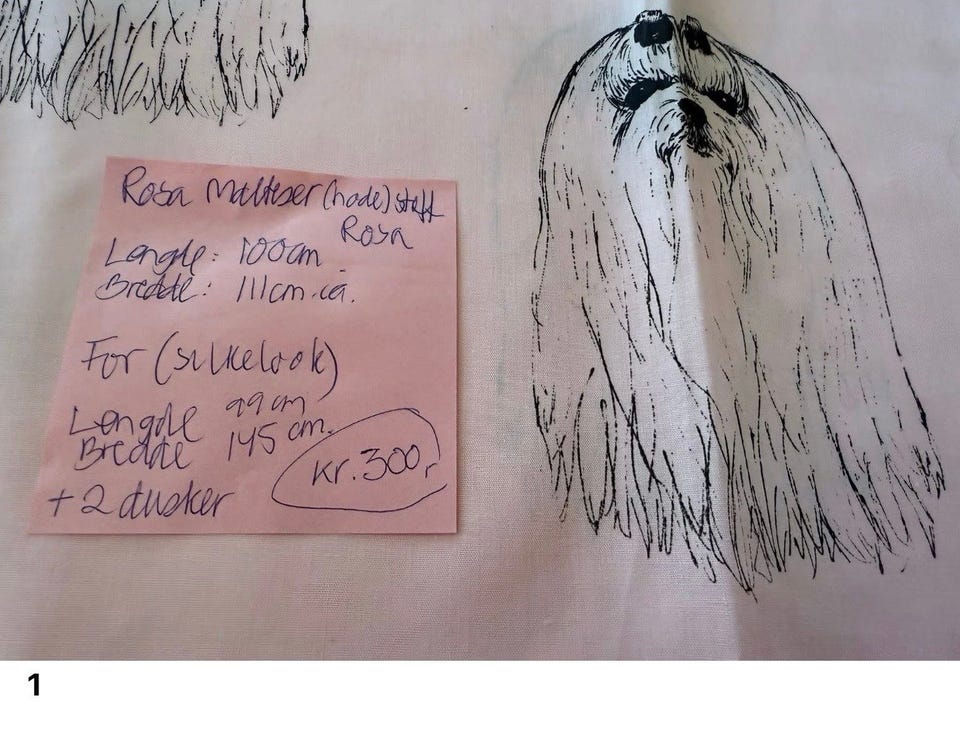 Rosa Malteser (hode) stoff
Rosa
Lengde: 100cm
Bredde: 111cm.ca.
For (silkelook)
Lengde 99cm
Bredde 145 cm.
+ 2 dusker
kr. 300,
1